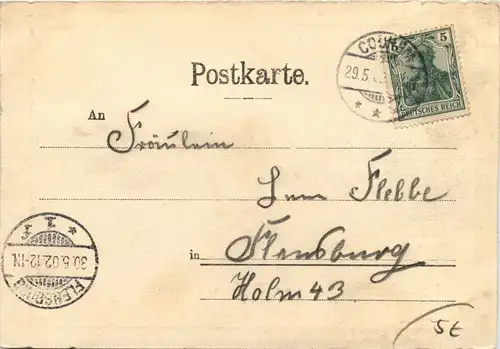 5
DEUTSCHES REICH
29.5
Postkarte.
An
Fräulein
Flebbe
in Flensburg
Holm 43
30.5.02.12-1N.
FLENSBURG
5€